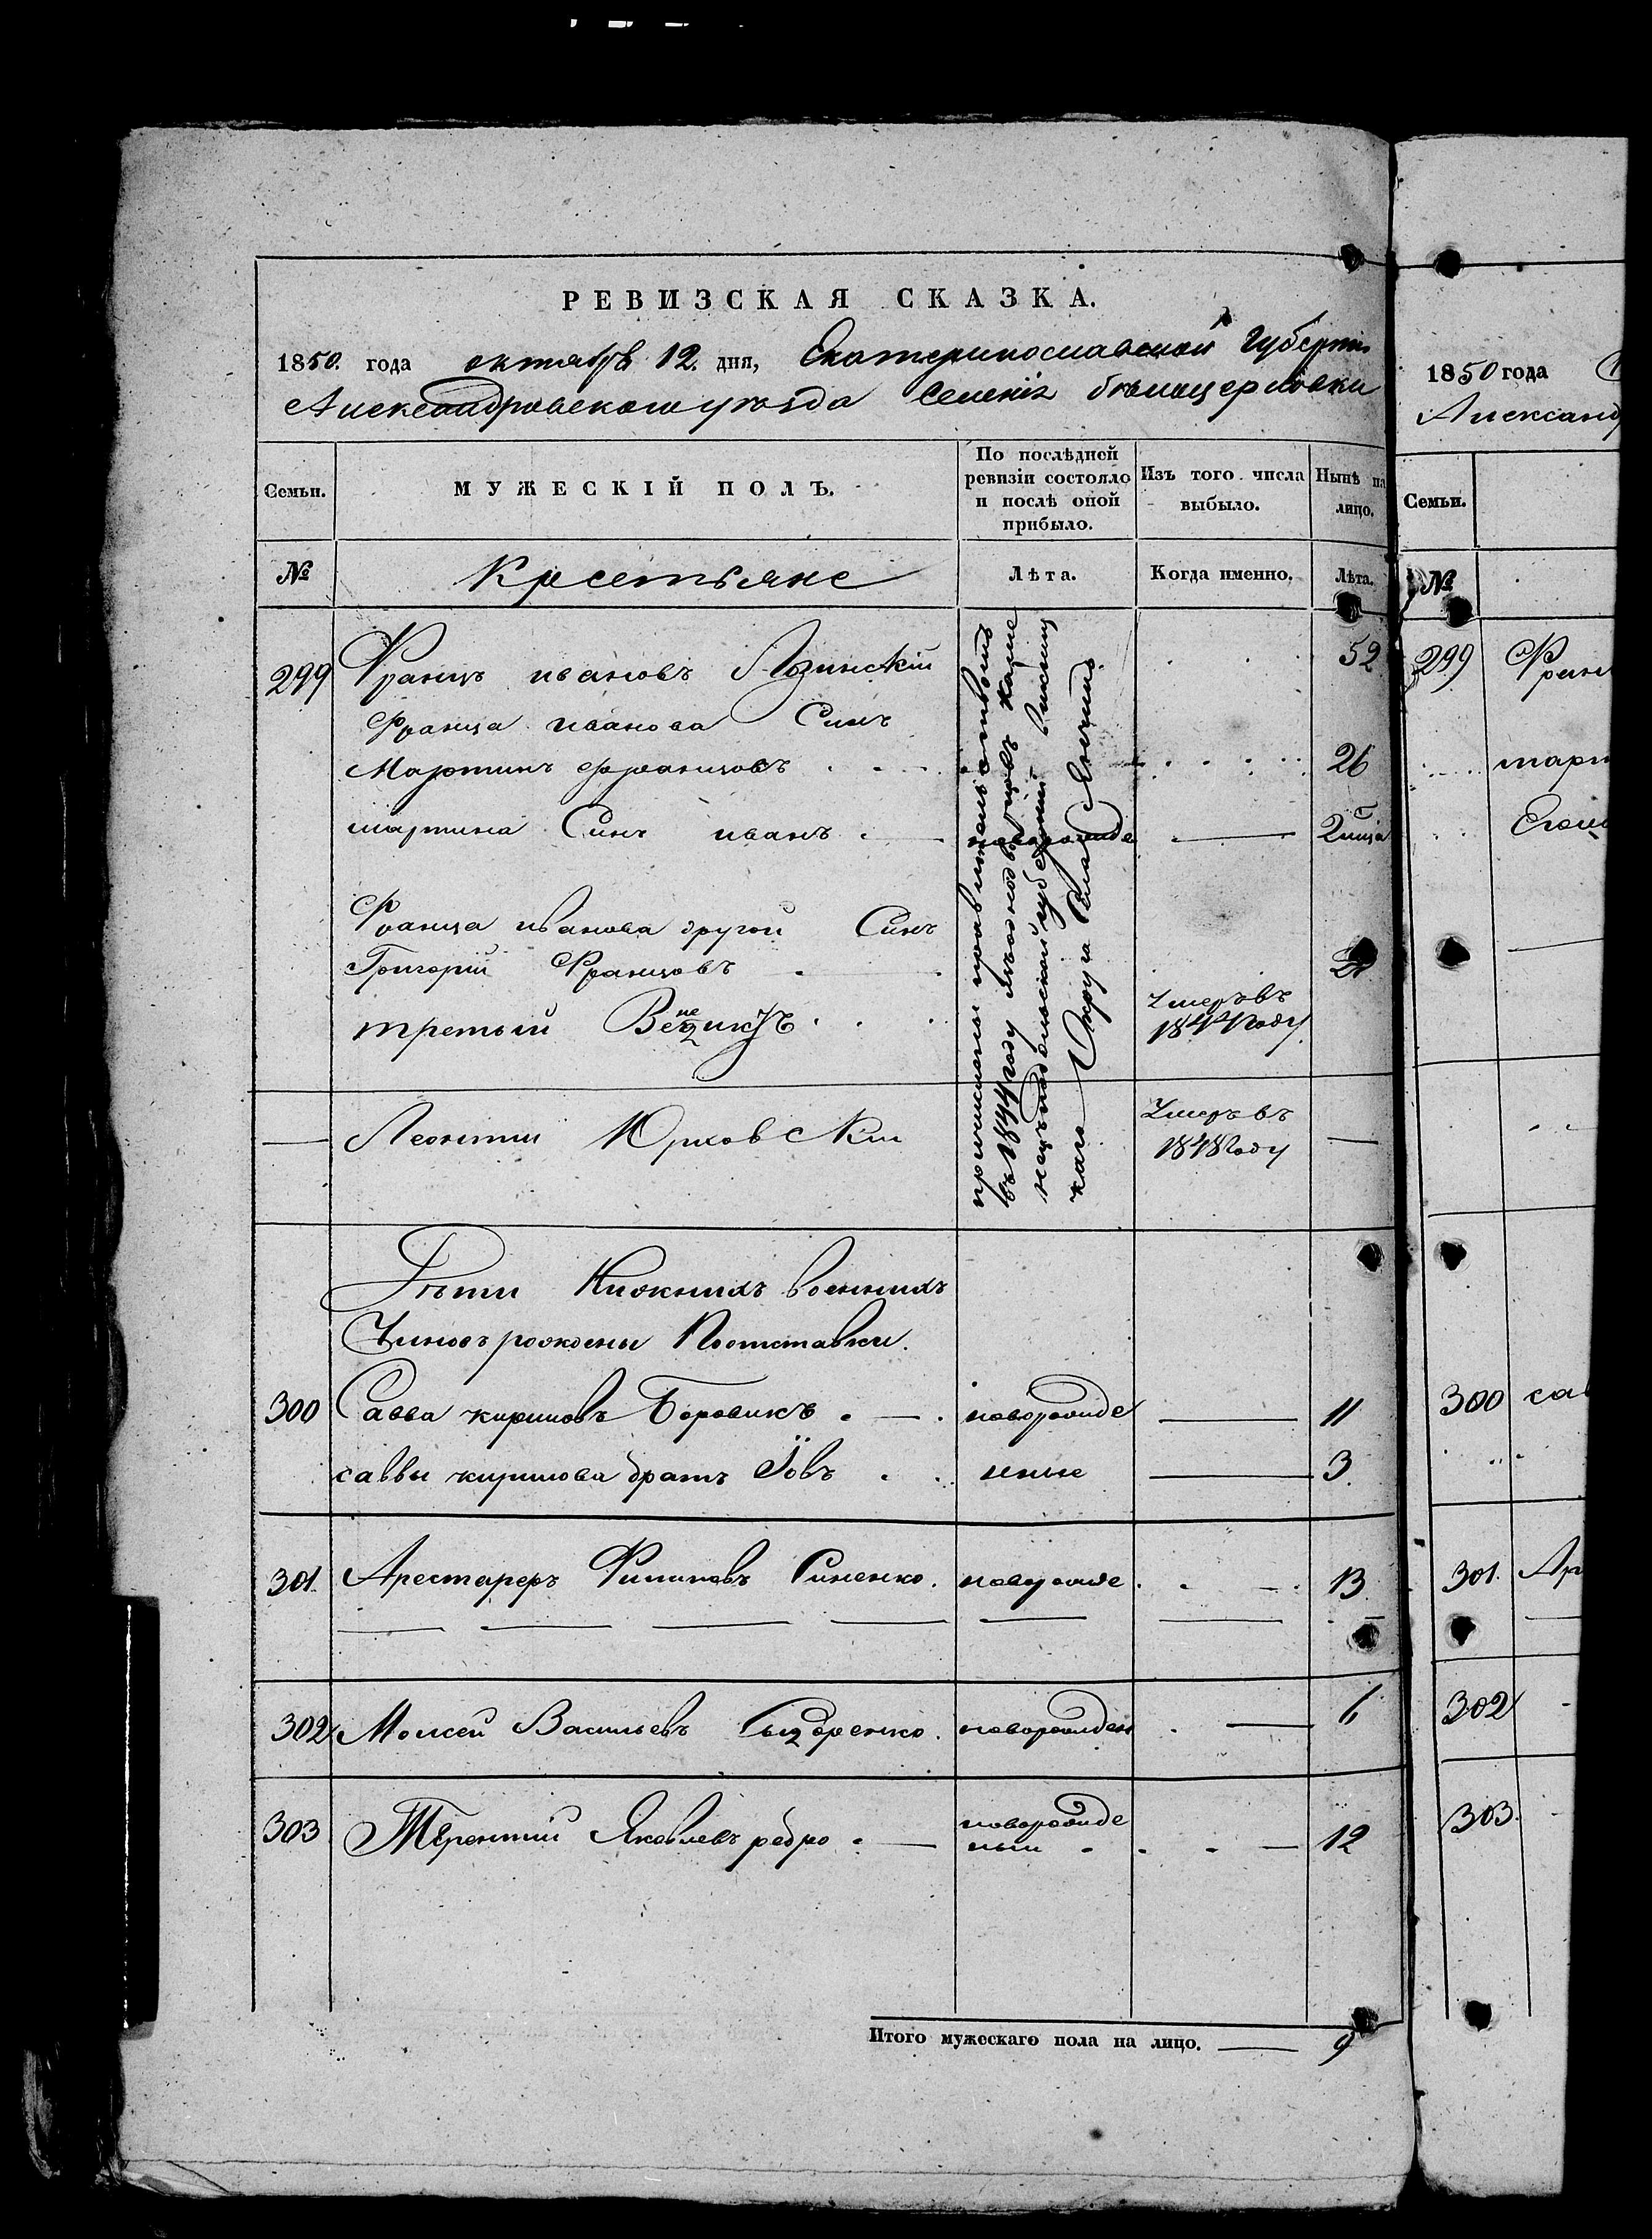 РЕВИЗСКАЯ СКАЗКА.
1850. года октября 12. дня, Екатеринославской Губерніи
Александровскаго уезда Селенія белоцерковки
Семьи.
МУЖЕСКІЙ ПОЛЪ.
По послѣдней
ревизіи состояло
и послѣ оной
прибыло.
Изъ того числа
выбыло.
Нынѣ на
лицо.
№
Крестьяне
Лѣта.
Когда именно.
Лѣта.
299 Францъ ивановъ Лозинскій 52
Франца иванова Синъ
Мартинъ францовъ 26
мартина Синъ иванъ новорожде
Франца иванова другой Синъ
Григорій Францовъ
третый
Умеръ въ
году
въ 1844 году
Округа
— Леонтии Юрковскій
Умеръ въ
1848 году
—
Дѣти Нижнихъ военнихъ
Чиновъ рождены Поотставки.
300 Савва кириловъ Боровикъ новорожде 11
саввы кирилова братъ Іовъ нные 3
301. Арестархъ Филиповъ Синенко. новорожде 13
302 Моисей Васильевъ Сыдоренко. новорожден 6
303 Терентий Яковлевъ ребро новорожде
ный 12
Итого мужескаго пола на лицо. 9
1850 года
Александ
Семьи.
№
299 Фран
март
300 сав
301. Ар
302
303.